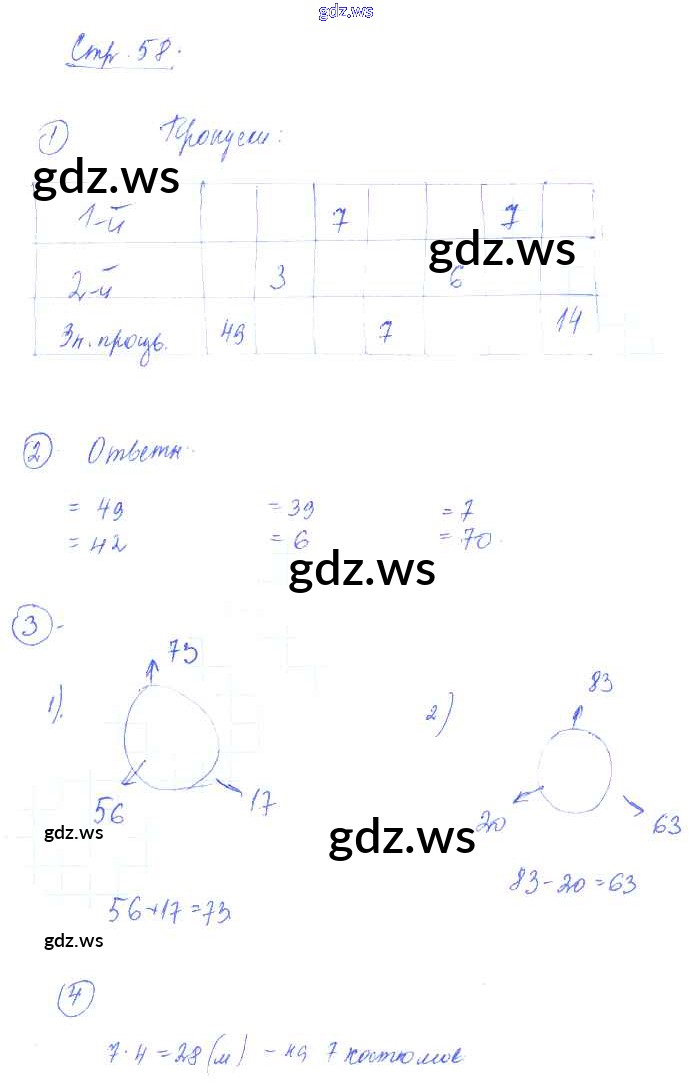 gdz.ws
Стр. 58.
1 Пропуски:
gdz.ws
1-й 7 7
gdz.ws
2-й 3 6
Зн. произв. 49 7 14
2 Ответы:
= 49 = 39 = 7
= 42 = 6 = 70
gdz.ws
3
1). 73
56 17
2) 83
20 63
gdz.ws
gdz.ws
83-20=63
56+17=73
gdz.ws
4
7·4=28(м) - на 7 костюмов